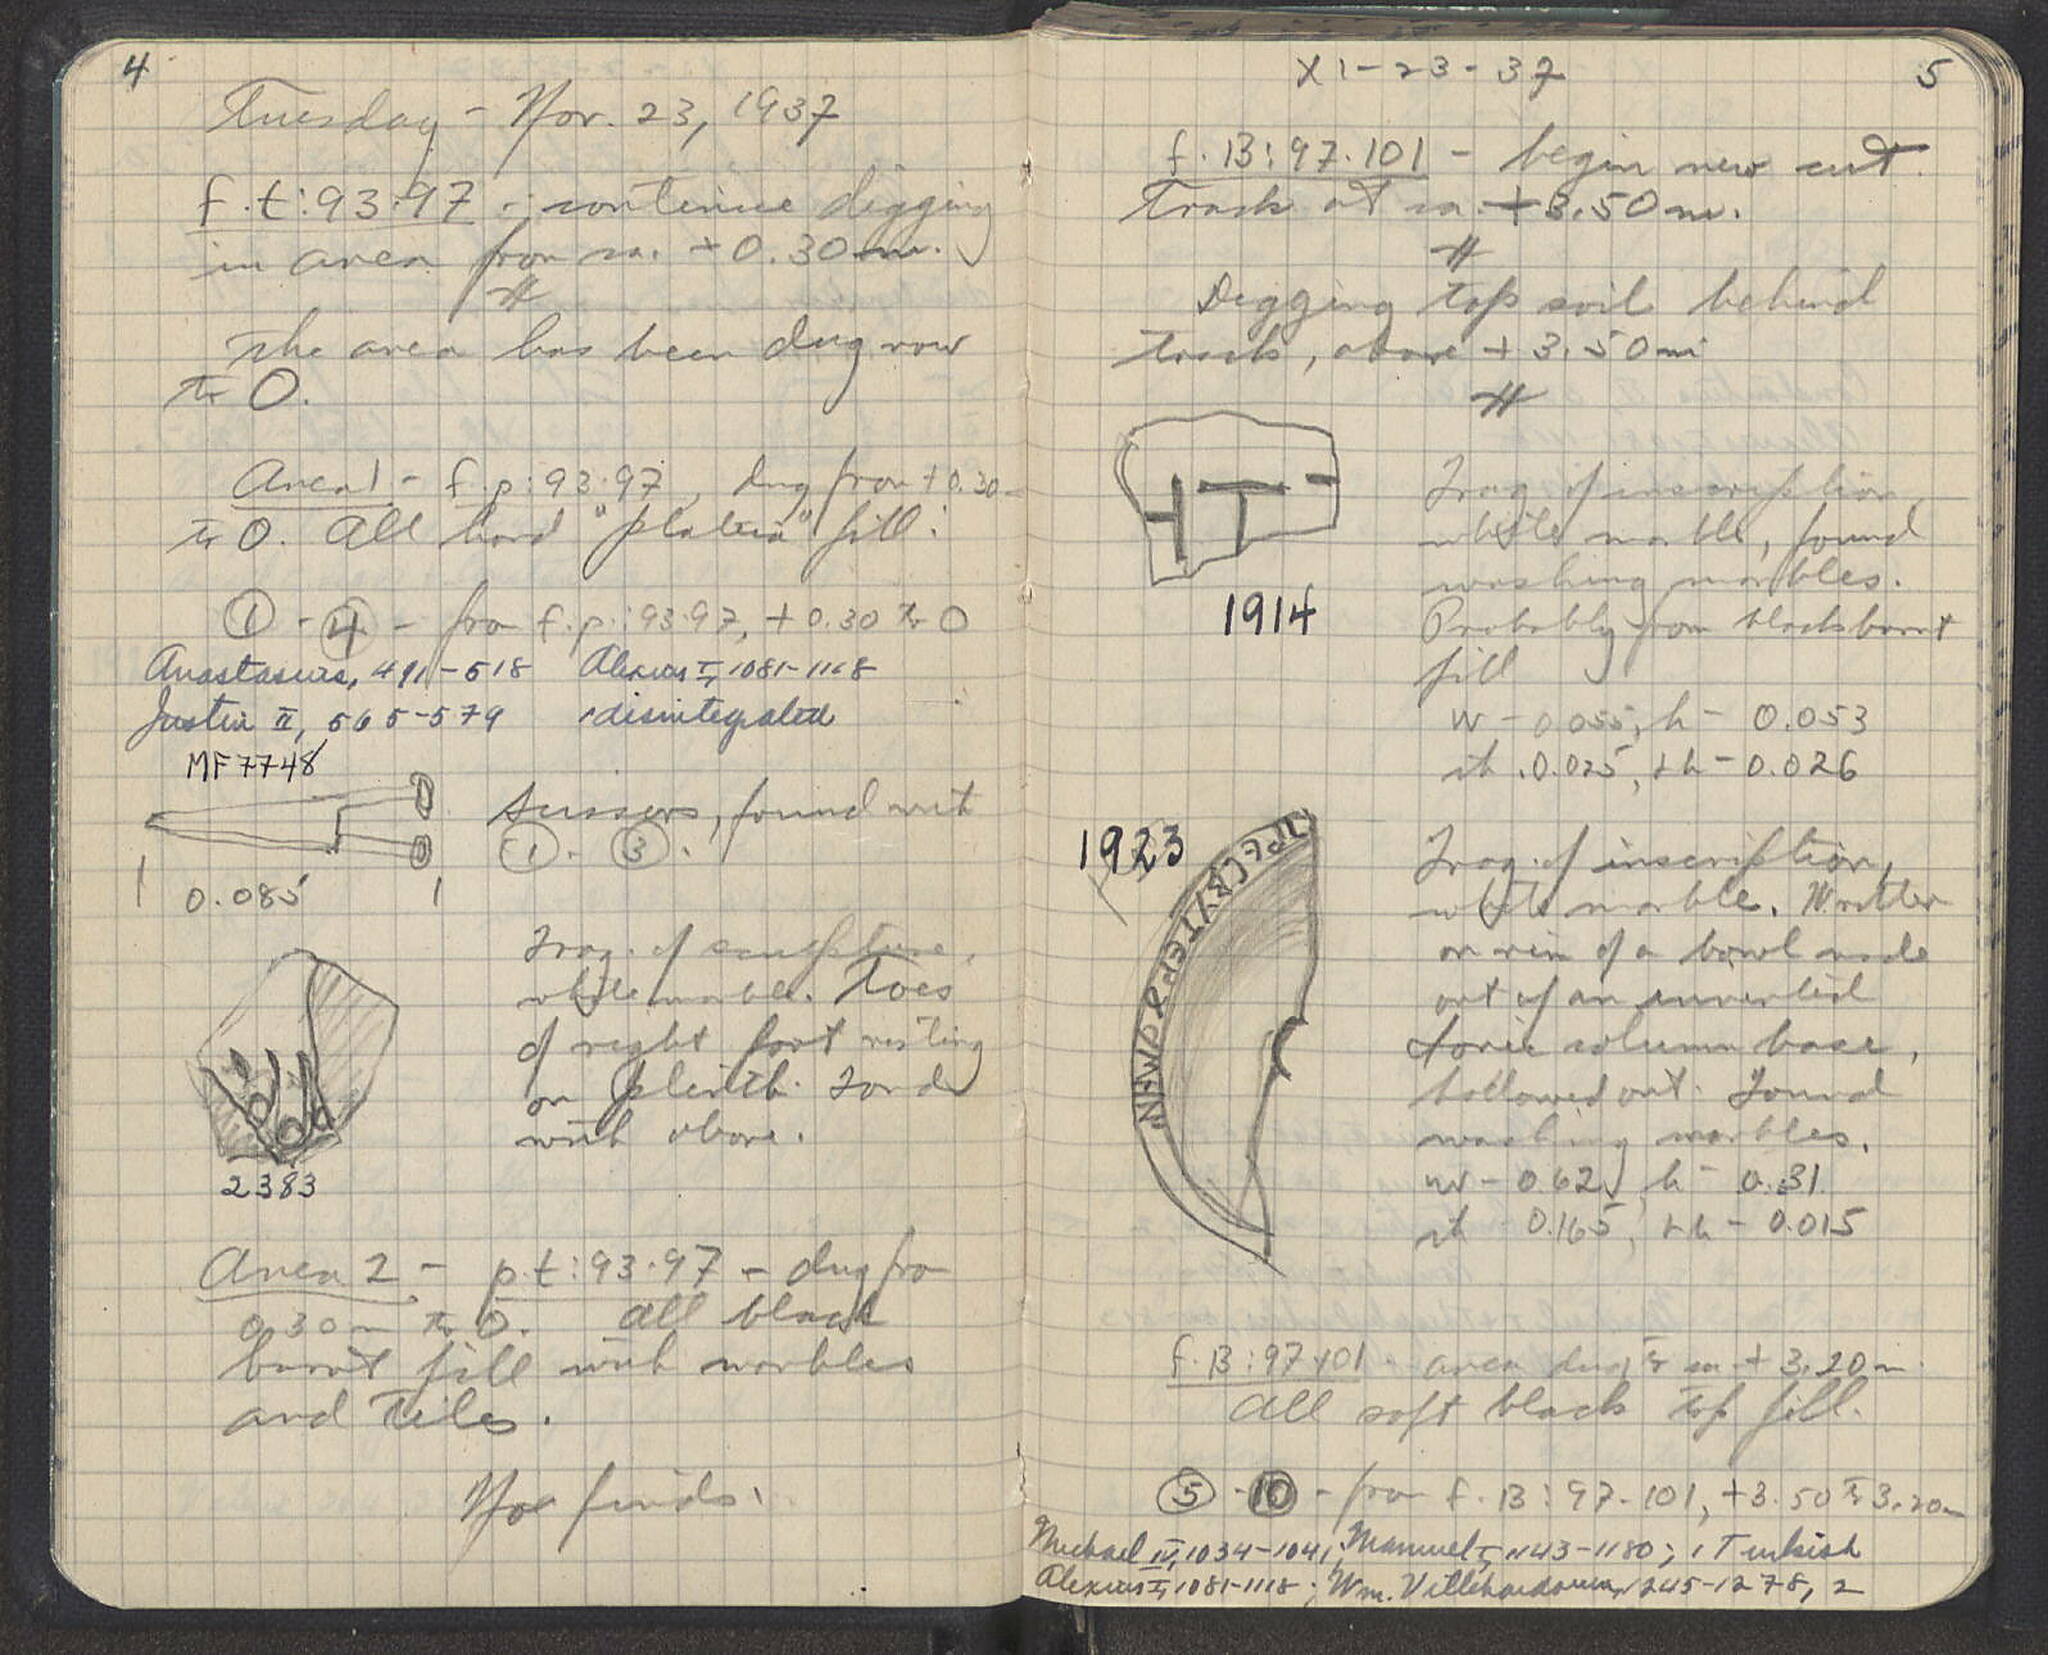 4
Tuesday - Nov. 23, 1937
f.t:93.97 - continue digging
in area from ca. +0.30m.
#
The area has been dug now
to 0.
Area 1 - f.p:93.97, dug from +0.30
to 0. All hard "plateia" fill.
① - ④ - from f.p.:93.97, +0.30 to 0
Anastasius, 491-518 Alexius I, 1081-1118
Justin II, 565-579 1 disintegrated
MF 7748
Scissors, found with
① - ③.
0.085
Frag. of sculpture,
white marble. Toes
of right foot resting
on plinth. Found
with above.
2383
Area 2 - p.t:93.97 - dug from
0.30m to 0. All black
burnt fill with marbles
and tiles.
No finds.
XI-23-37
5
f.B:97.101 - begin new cut.
Track at ca. +3.50m.
#
Digging top soil behind
track, above +3.50m
#
Frag. of inscription,
white marble, found
washing marbles.
Probably from black burnt
fill
1914
w - 0.055, h - 0.053
th. 0.025, lh - 0.026
1923
Frag. of inscription,
white marble. Written
on rim of a bowl made
out of an inverted
Ionic column base,
hollowed out. Found
washing marbles.
w - 0.62, h - 0.31
th - 0.165, lh - 0.015
f.B:97.101 - area dug to ca + 3.20m.
All soft black top fill.
⑤ - ⑩ - from f.B:97-101, +3.50 to 3.20m
Michael IV, 1034-1041; Manuel I, 1143-1180; 1 Turkish
Alexius I, 1081-1118; Wm. Villehardouin, 1245-1278, 2